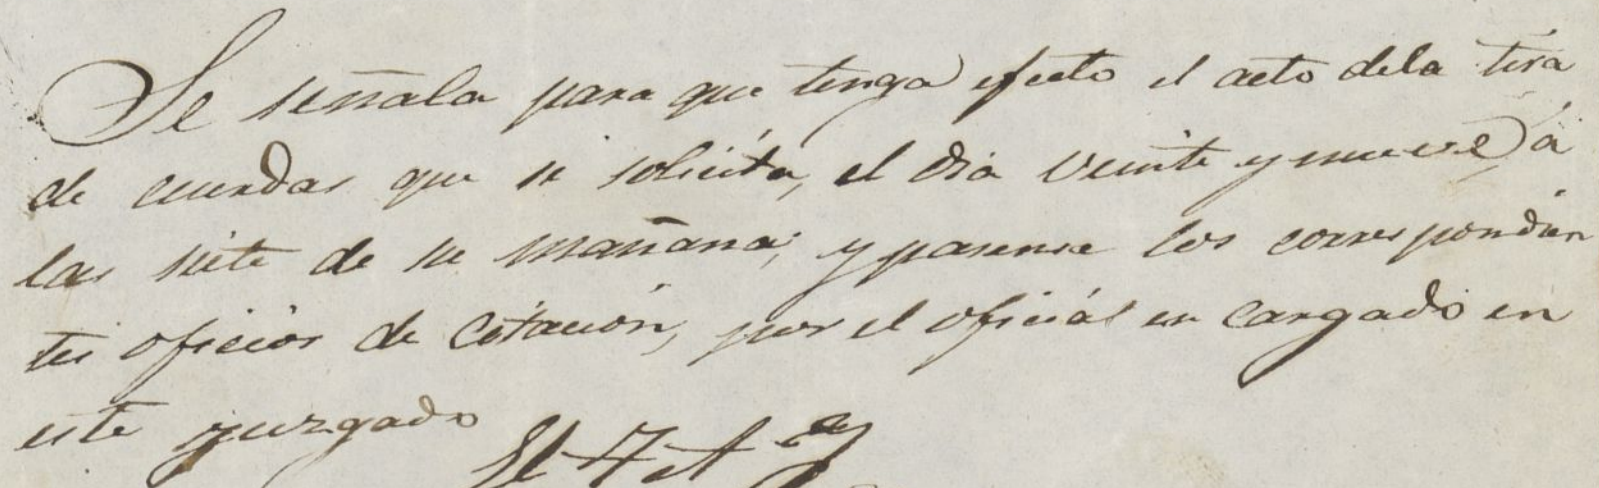 Se señala para que tenga efecto el acto dela tira
de cuerdas que se solicita, el dia veinte y nueve, á
las siete de su mañana; y pasense los correspondien
tes oficios de citación, por el oficiál en cargado en
este juzgado